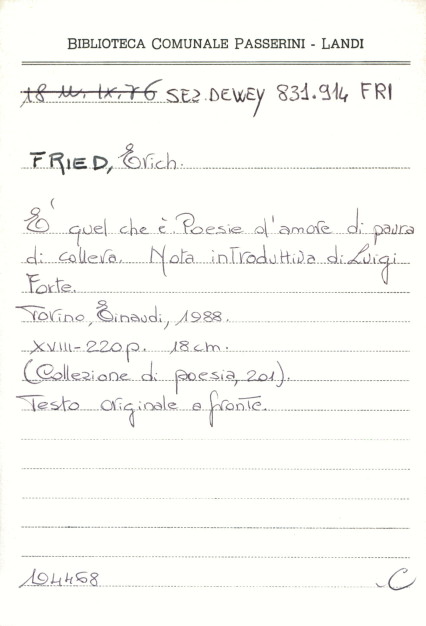 BIBLIOTECA COMUNALE PASSERINI - LANDI
18 M. IX. 76 SEZ. DEWEY 831.914 FRI
FRIED, Erich.
E' quel che è. Poesie d'amore di paura
di collera. Nota introduttiva di Luigi
Forte.
Torino, Einaudi, 1988.
XVIII-220 p. 18 cm.
(Collezione di poesia, 201).
Testo originale a fronte.
104468 C